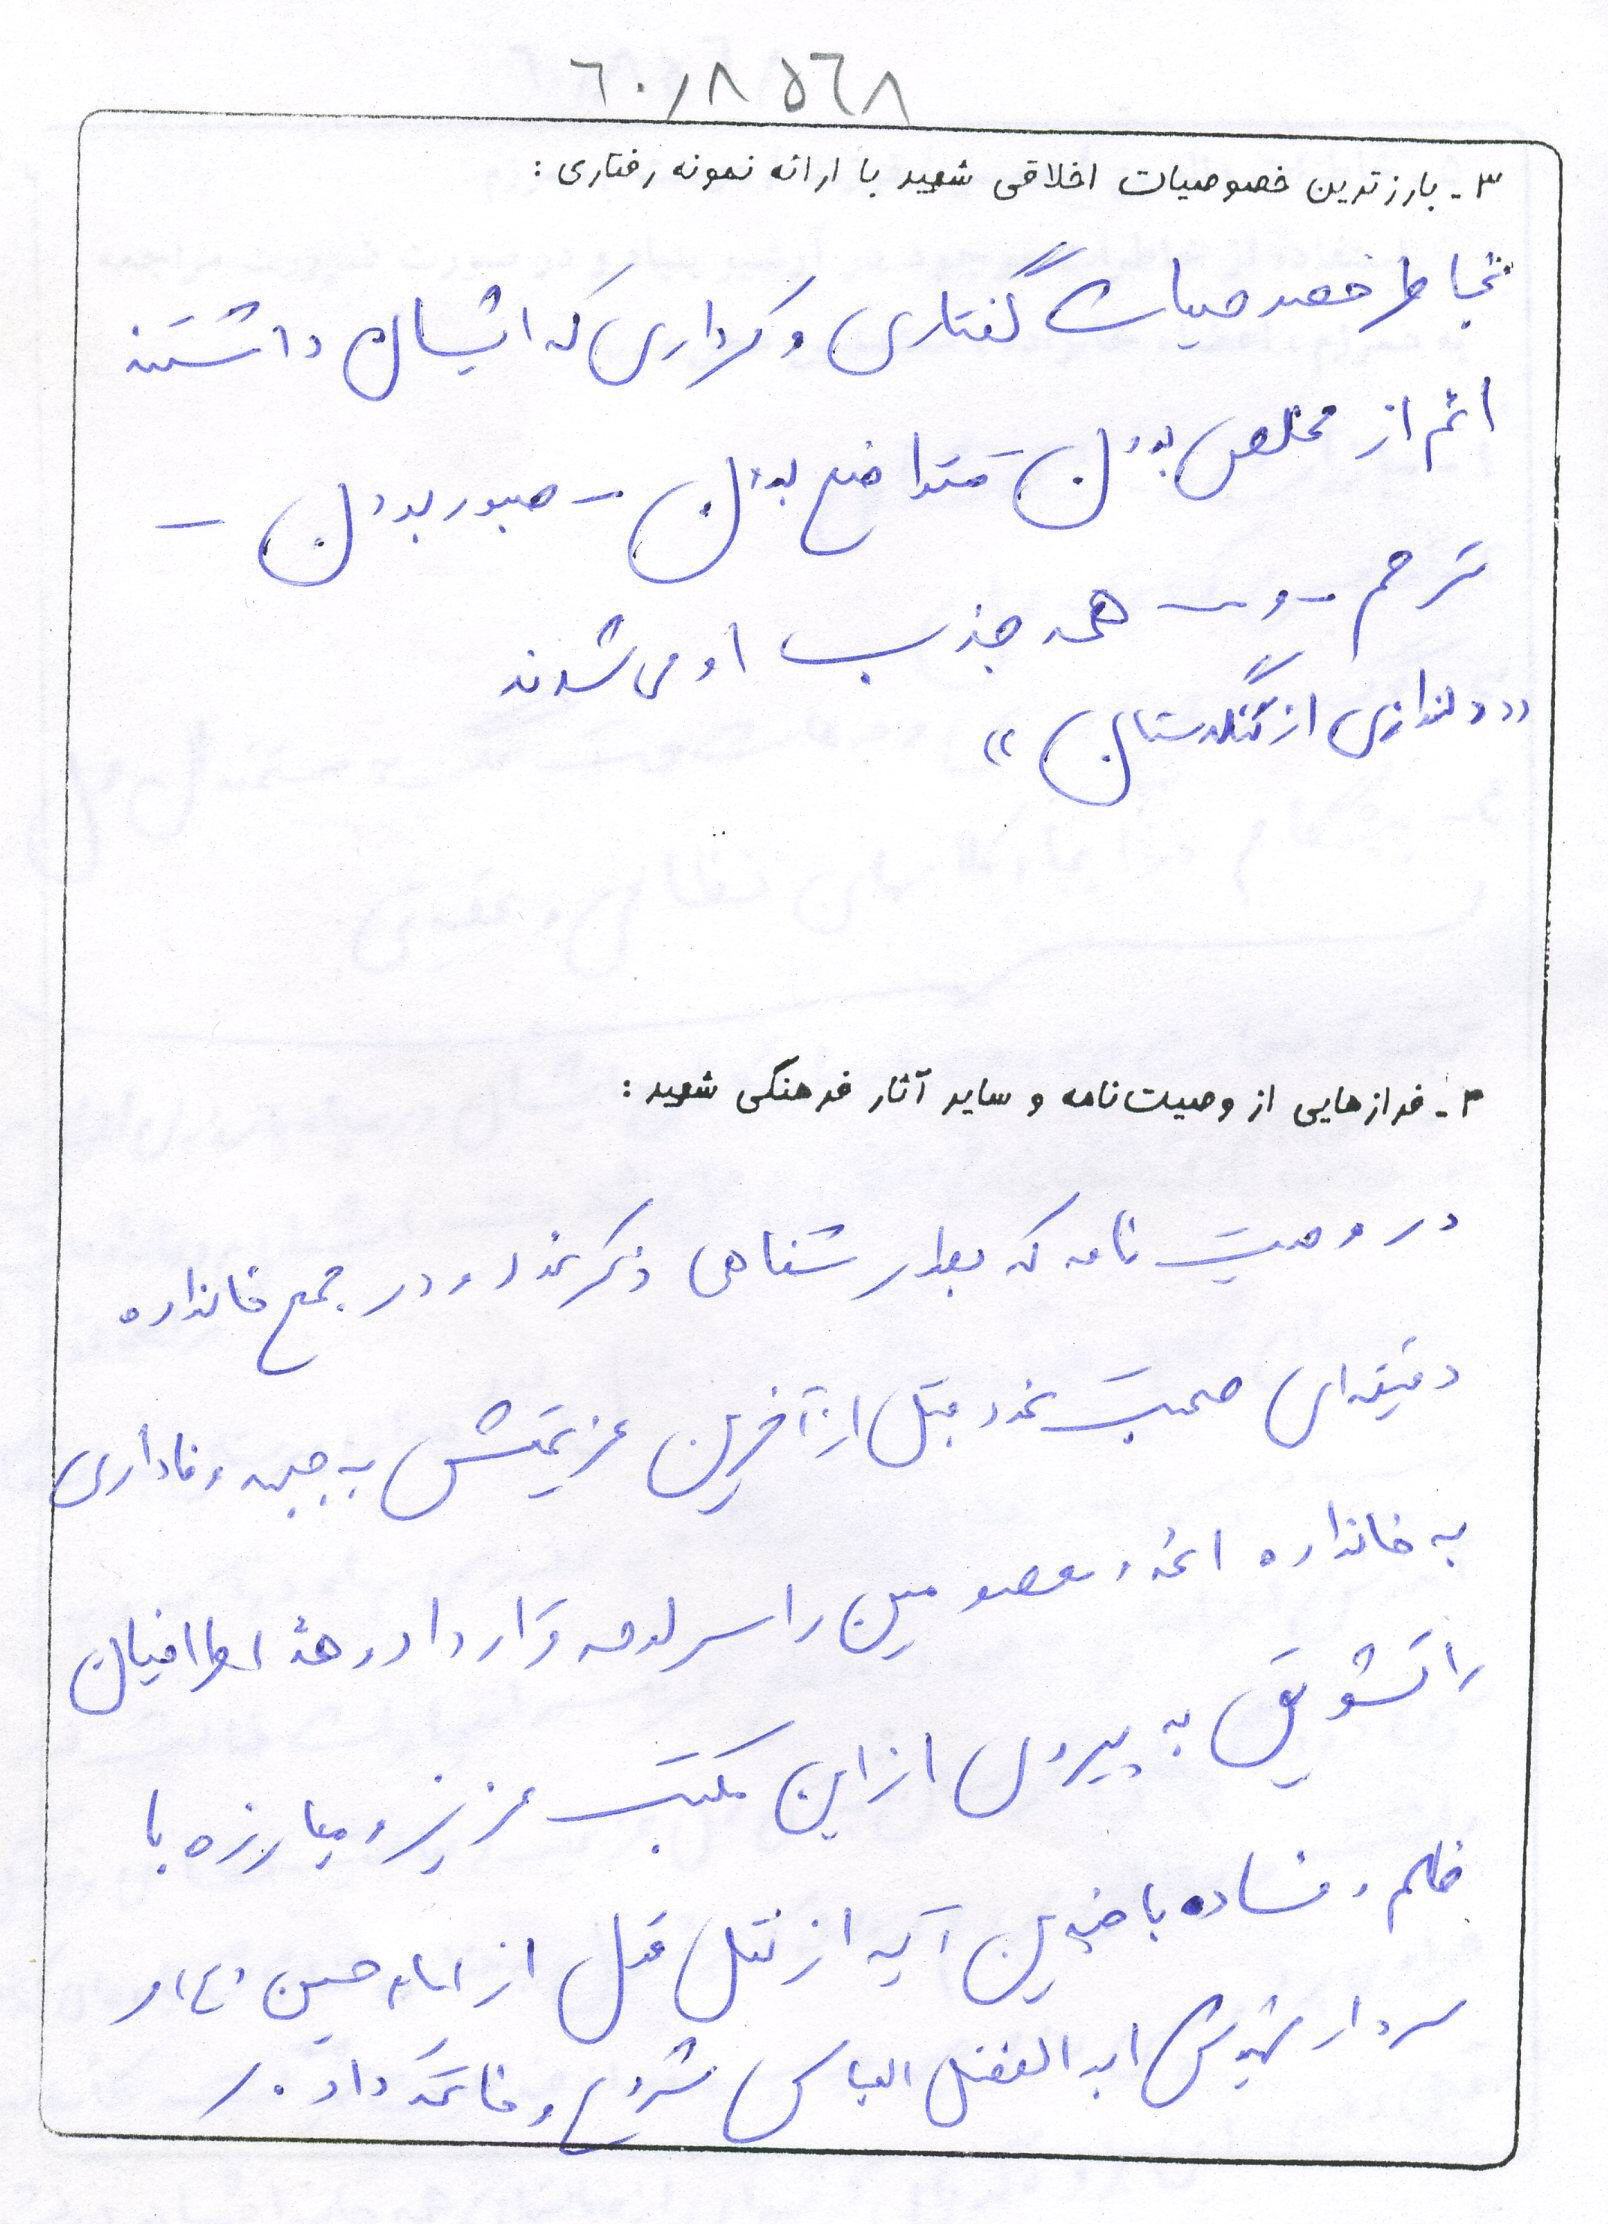 ۶۰/۸ ۵۶۸
۳- بارزترین خصوصیات اخلاقی شهید با ارائه نمونه رفتاری:
بخاطر خصوصیات گفتاری و کرداری که ایشان داشتند
اعم از مخلص بودن - متواضع بودن - صبور بودن -
ترحم - و - همه جذب او می شدند
((دولندازی از گلدستان))
۴- فرازهایی از وصیت‌نامه و سایر آثار فرهنگی شهید:
در وصیت نامه که بطور شفاهی ذکر نمود و در جمع خانواده
دقیقه‌ای صحبت نمود قبل از آخرین عزیمتش به جبهه وفاداری
به خانواده ائمه و معصومین را سرلوحه قرار داد و همه اطرافیان
را تشویق به پیروی از این مکتب عزیز و مبارزه با
ظلم و فساد با چندین آیه از قتل از امام حسین (ع) و
سردار رشیدش ابوالفضل العباس شروع و خاتمه داد ./